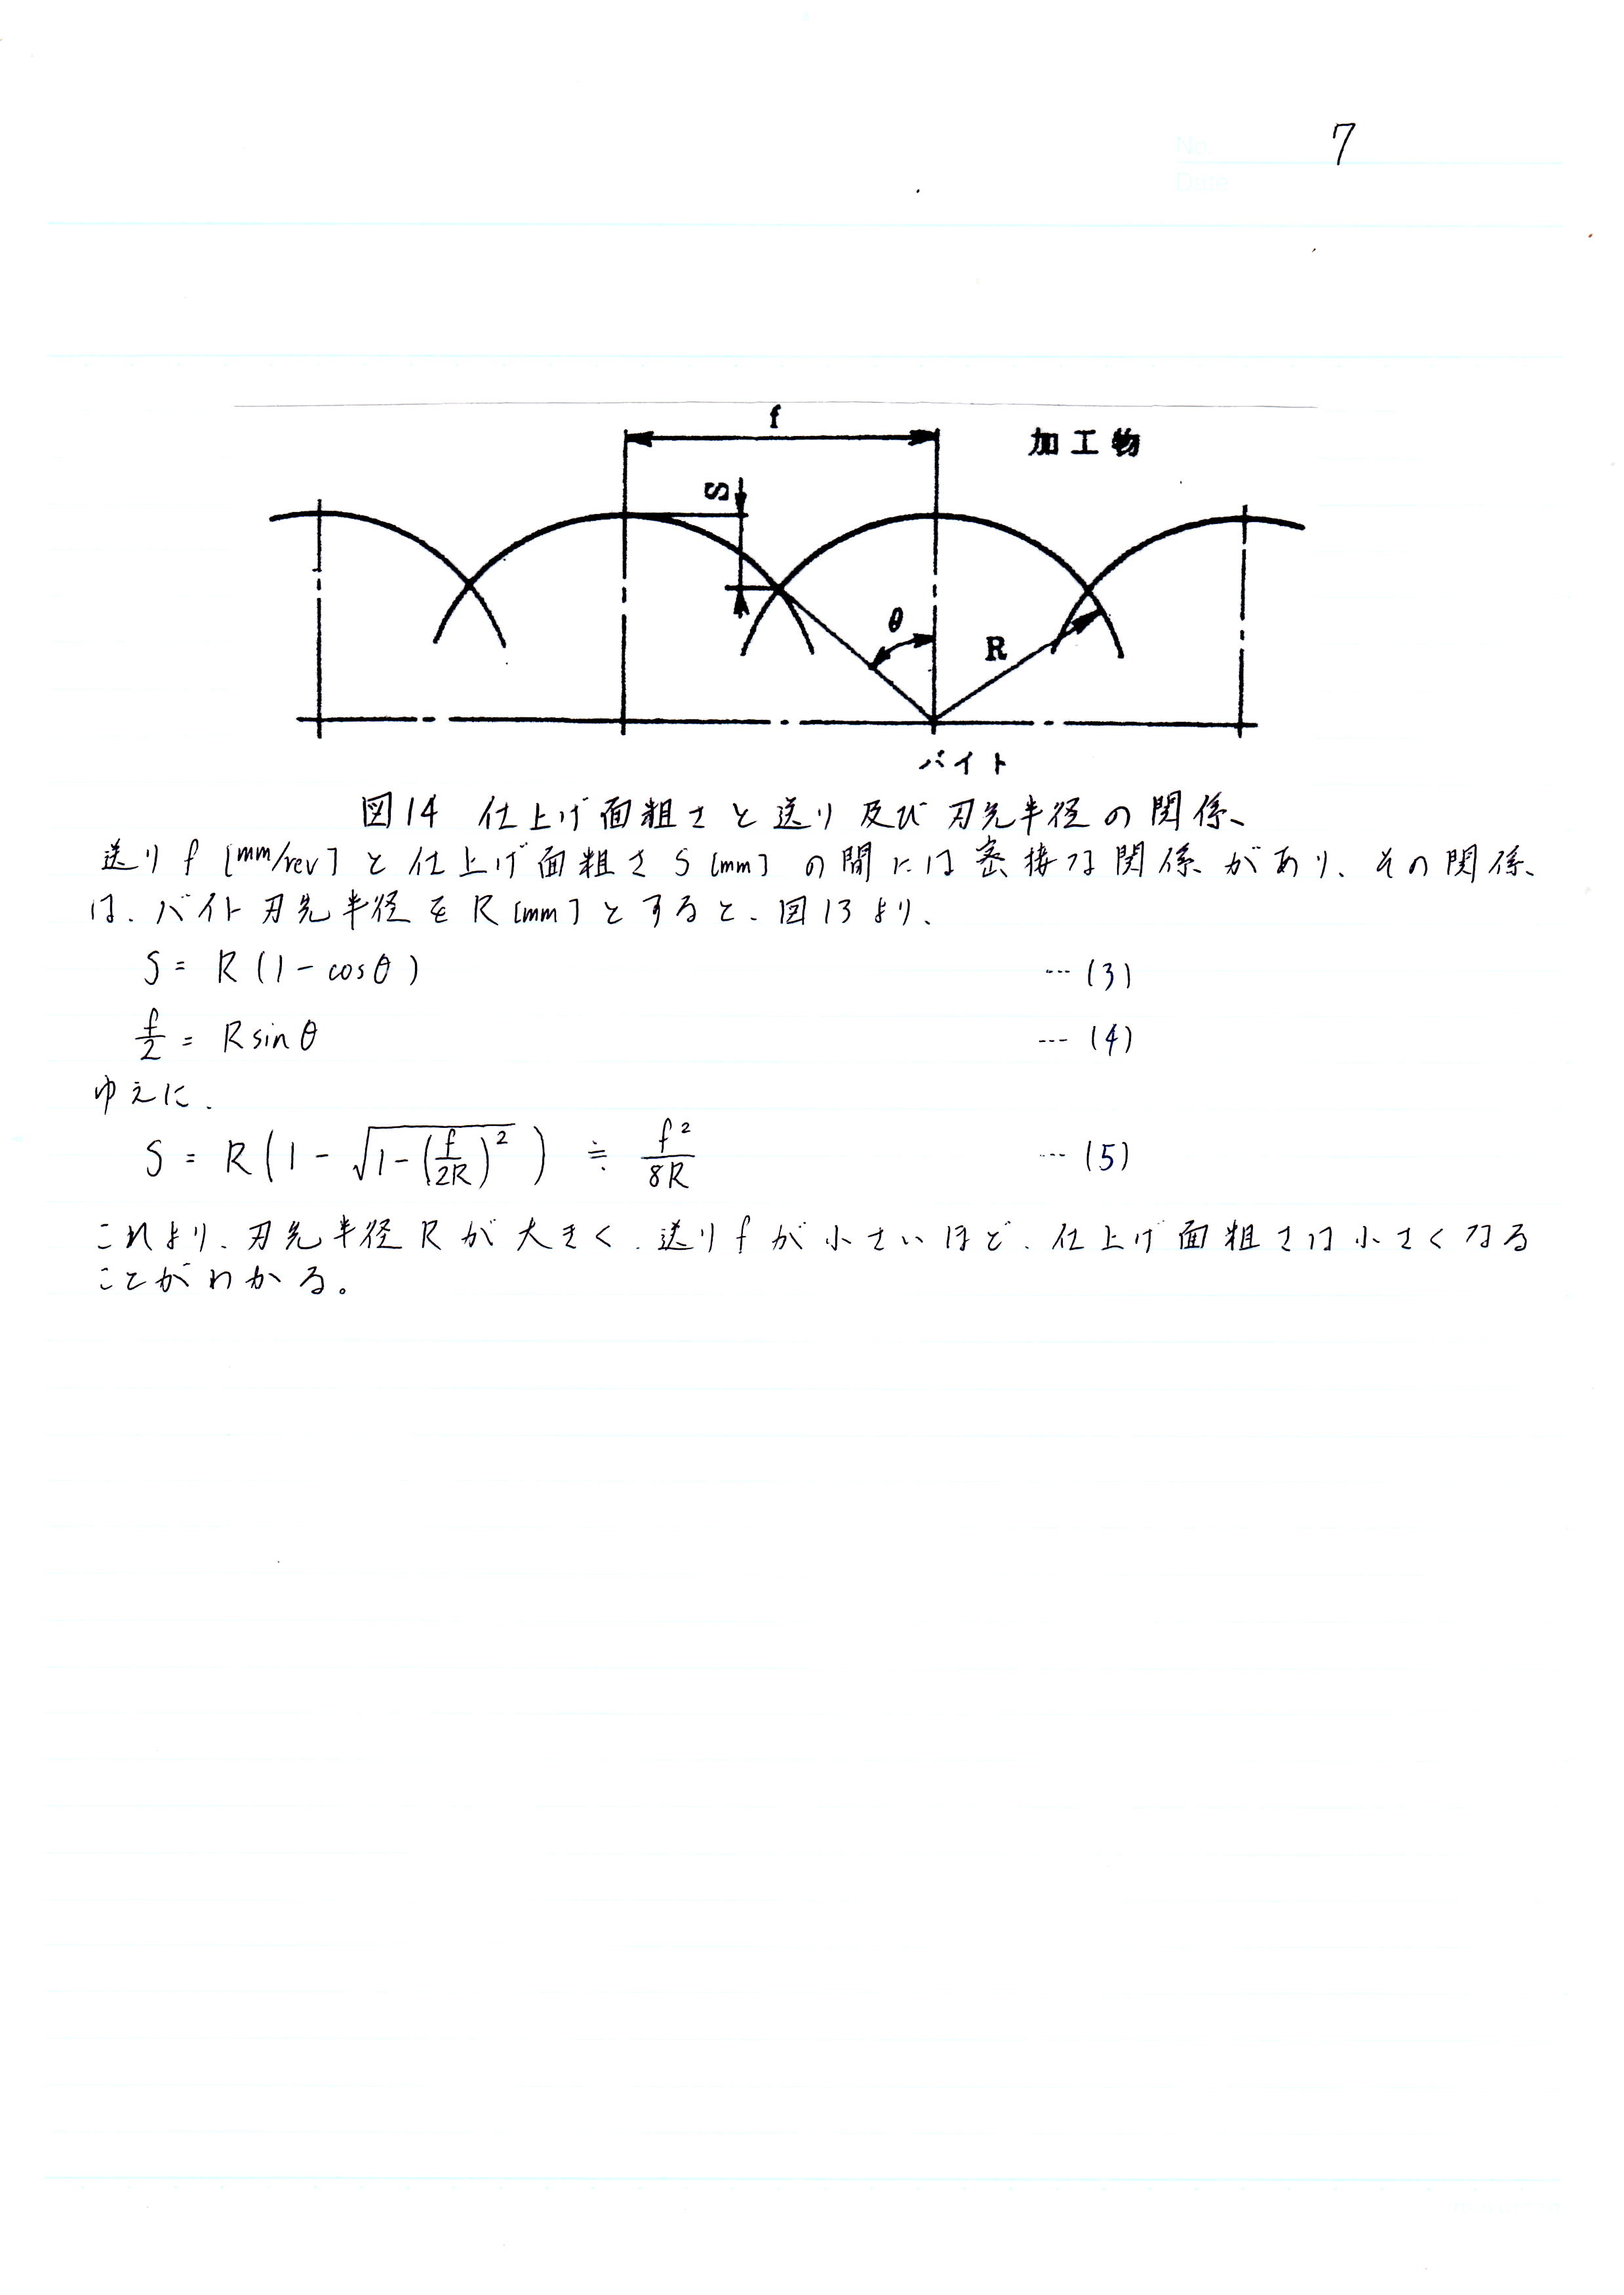 No.
7
Date
f
加工物
S
θ
R
バイト
図14 仕上げ面粗さと送り及び刃先半径の関係、
送りf [mm/rev] と仕上げ面粗さ S [mm] の間には密接な関係があり、その関係
は、バイト刃先半径をR [mm] とすると、図13より、
S = R(1-cosθ) …(3)
f/2 = R sinθ …(4)
ゆえに、
S = R(1-√(1-(f/2R)²)) ≒ f²/8R …(5)
これより、刃先半径Rが大きく、送りfが小さいほど、仕上げ面粗さは小さくなる
ことがわかる。